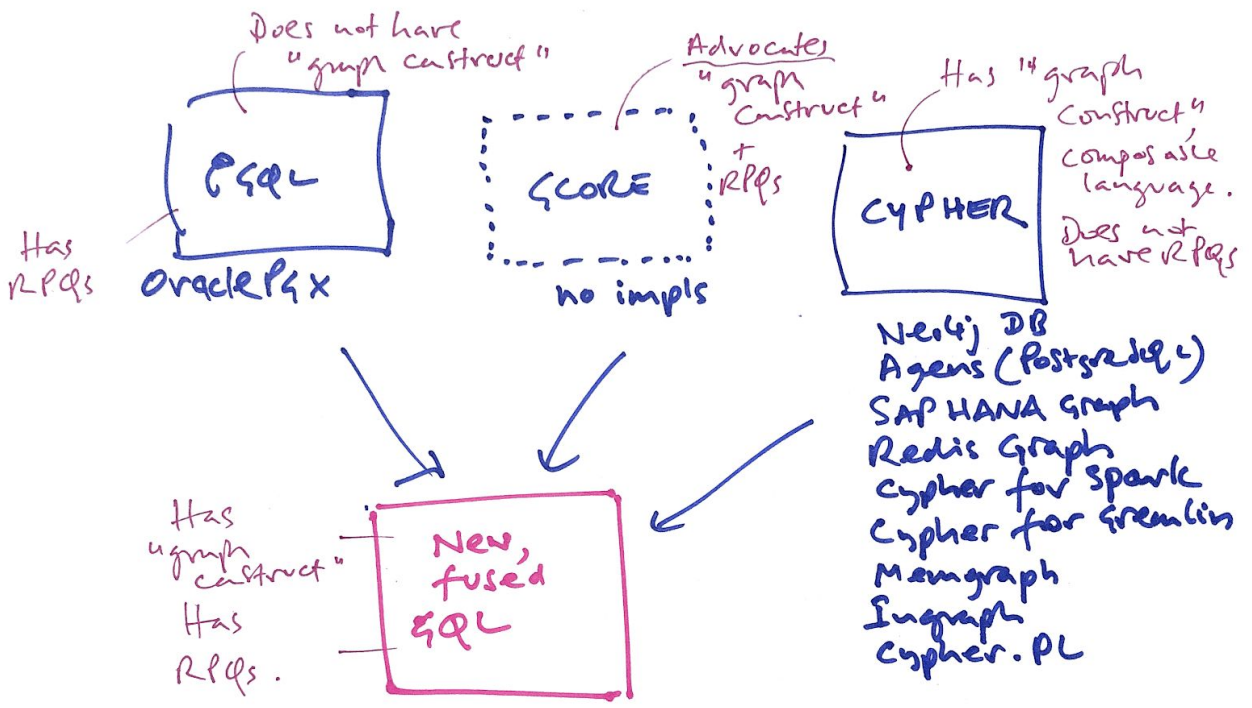 Does not have
"graph construct"
PGQL
Has
RPQs
Oracle PGX
Advocates
"graph
construct"
+
RPQs
GCORE
no impls
Has "graph
construct",
composable
language.
Does not
have RPQs
CYPHER
Neo4j DB
Agens (PostgreSQL)
SAP HANA Graph
Redis Graph
Cypher for Spark
Cypher for Gremlin
Memgraph
Ingraph
Cypher.PL
Has
"graph
construct"
Has
RPQs.
New,
fused
GQL